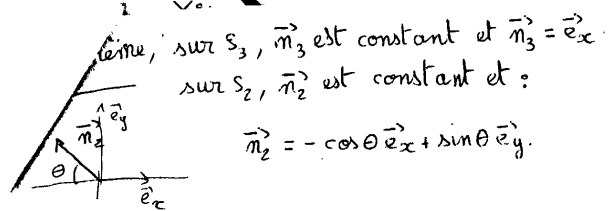 sur S₃, n⃗₃ est constant et n⃗₃ = e⃗ₓ.
sur S₂, n⃗₂ est constant et :
n⃗₂ = - cosθ e⃗ₓ + sinθ e⃗y.
e⃗y
n⃗₂
θ
e⃗ₓ